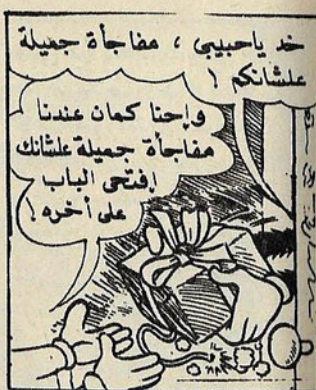 خد ياحبيبى ، مفاجأة جميلة
علشانكم !
وإحنا كمان عندنا
مفاجأة جميلة علشانك
إفتحى الباب
على أخره !